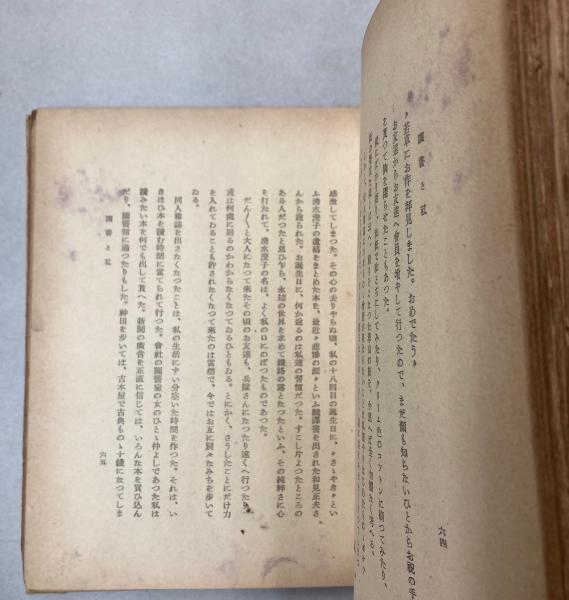 圖書と私
六四
〃若草にお作を拜見しました。おめでたう〃
お友達からお友達へ會員を增やして行つたので、まだ顏も知らないひとからお祝の手
を貰つて胸を躍らせたこともあつた。
感激してしまつた。その心の去りやらぬ頃、私の十八囘目の誕生日に、〃さゝやき〃とい
ふ淸水澄子の遺稿をまとめた本を、最近〃悲慘の涯〃といふ飜譯書を出された和見正夫さ
んから送られた。お誕生日に、何か送るのは私達の習慣だつた。すこし片よつたところの
ある人だつたと思ひ乍ら、永劫の世界を求めて鐵路の露となつたといふ、その純粹さに心
を打たれて、淸水澄子の名は、よく私の口にのぼつたものであつた。
だん〱と大人になつて來たその頃のお友達も、兵隊さんになつたり遠くへ行つたり
或は何處に居るのかわからなくなつてゐるひともゐる。とにかく、さうしたことにだけ力
を入れてゐることも許されなくなつて來たのは當然で、今ではお互に別々なみちを步いて
ゐる。
同人雜誌を出さなくなつたことは、私の生活にずい分空いた時間を作つた。それは、い
きほひ本を讀む時間に當てられて行つた。會社の圖書室の女のひとゝ仲よしであつた私は
讀みたい本を何でも出して貰へた。新聞の廣告を正直に信じては、いろんな本を買ひ込ん
だり、圖書館に通つたりもした。神田を步いては、古本屋で古典ものゝ十錢になつてしま
圖書と私
六五